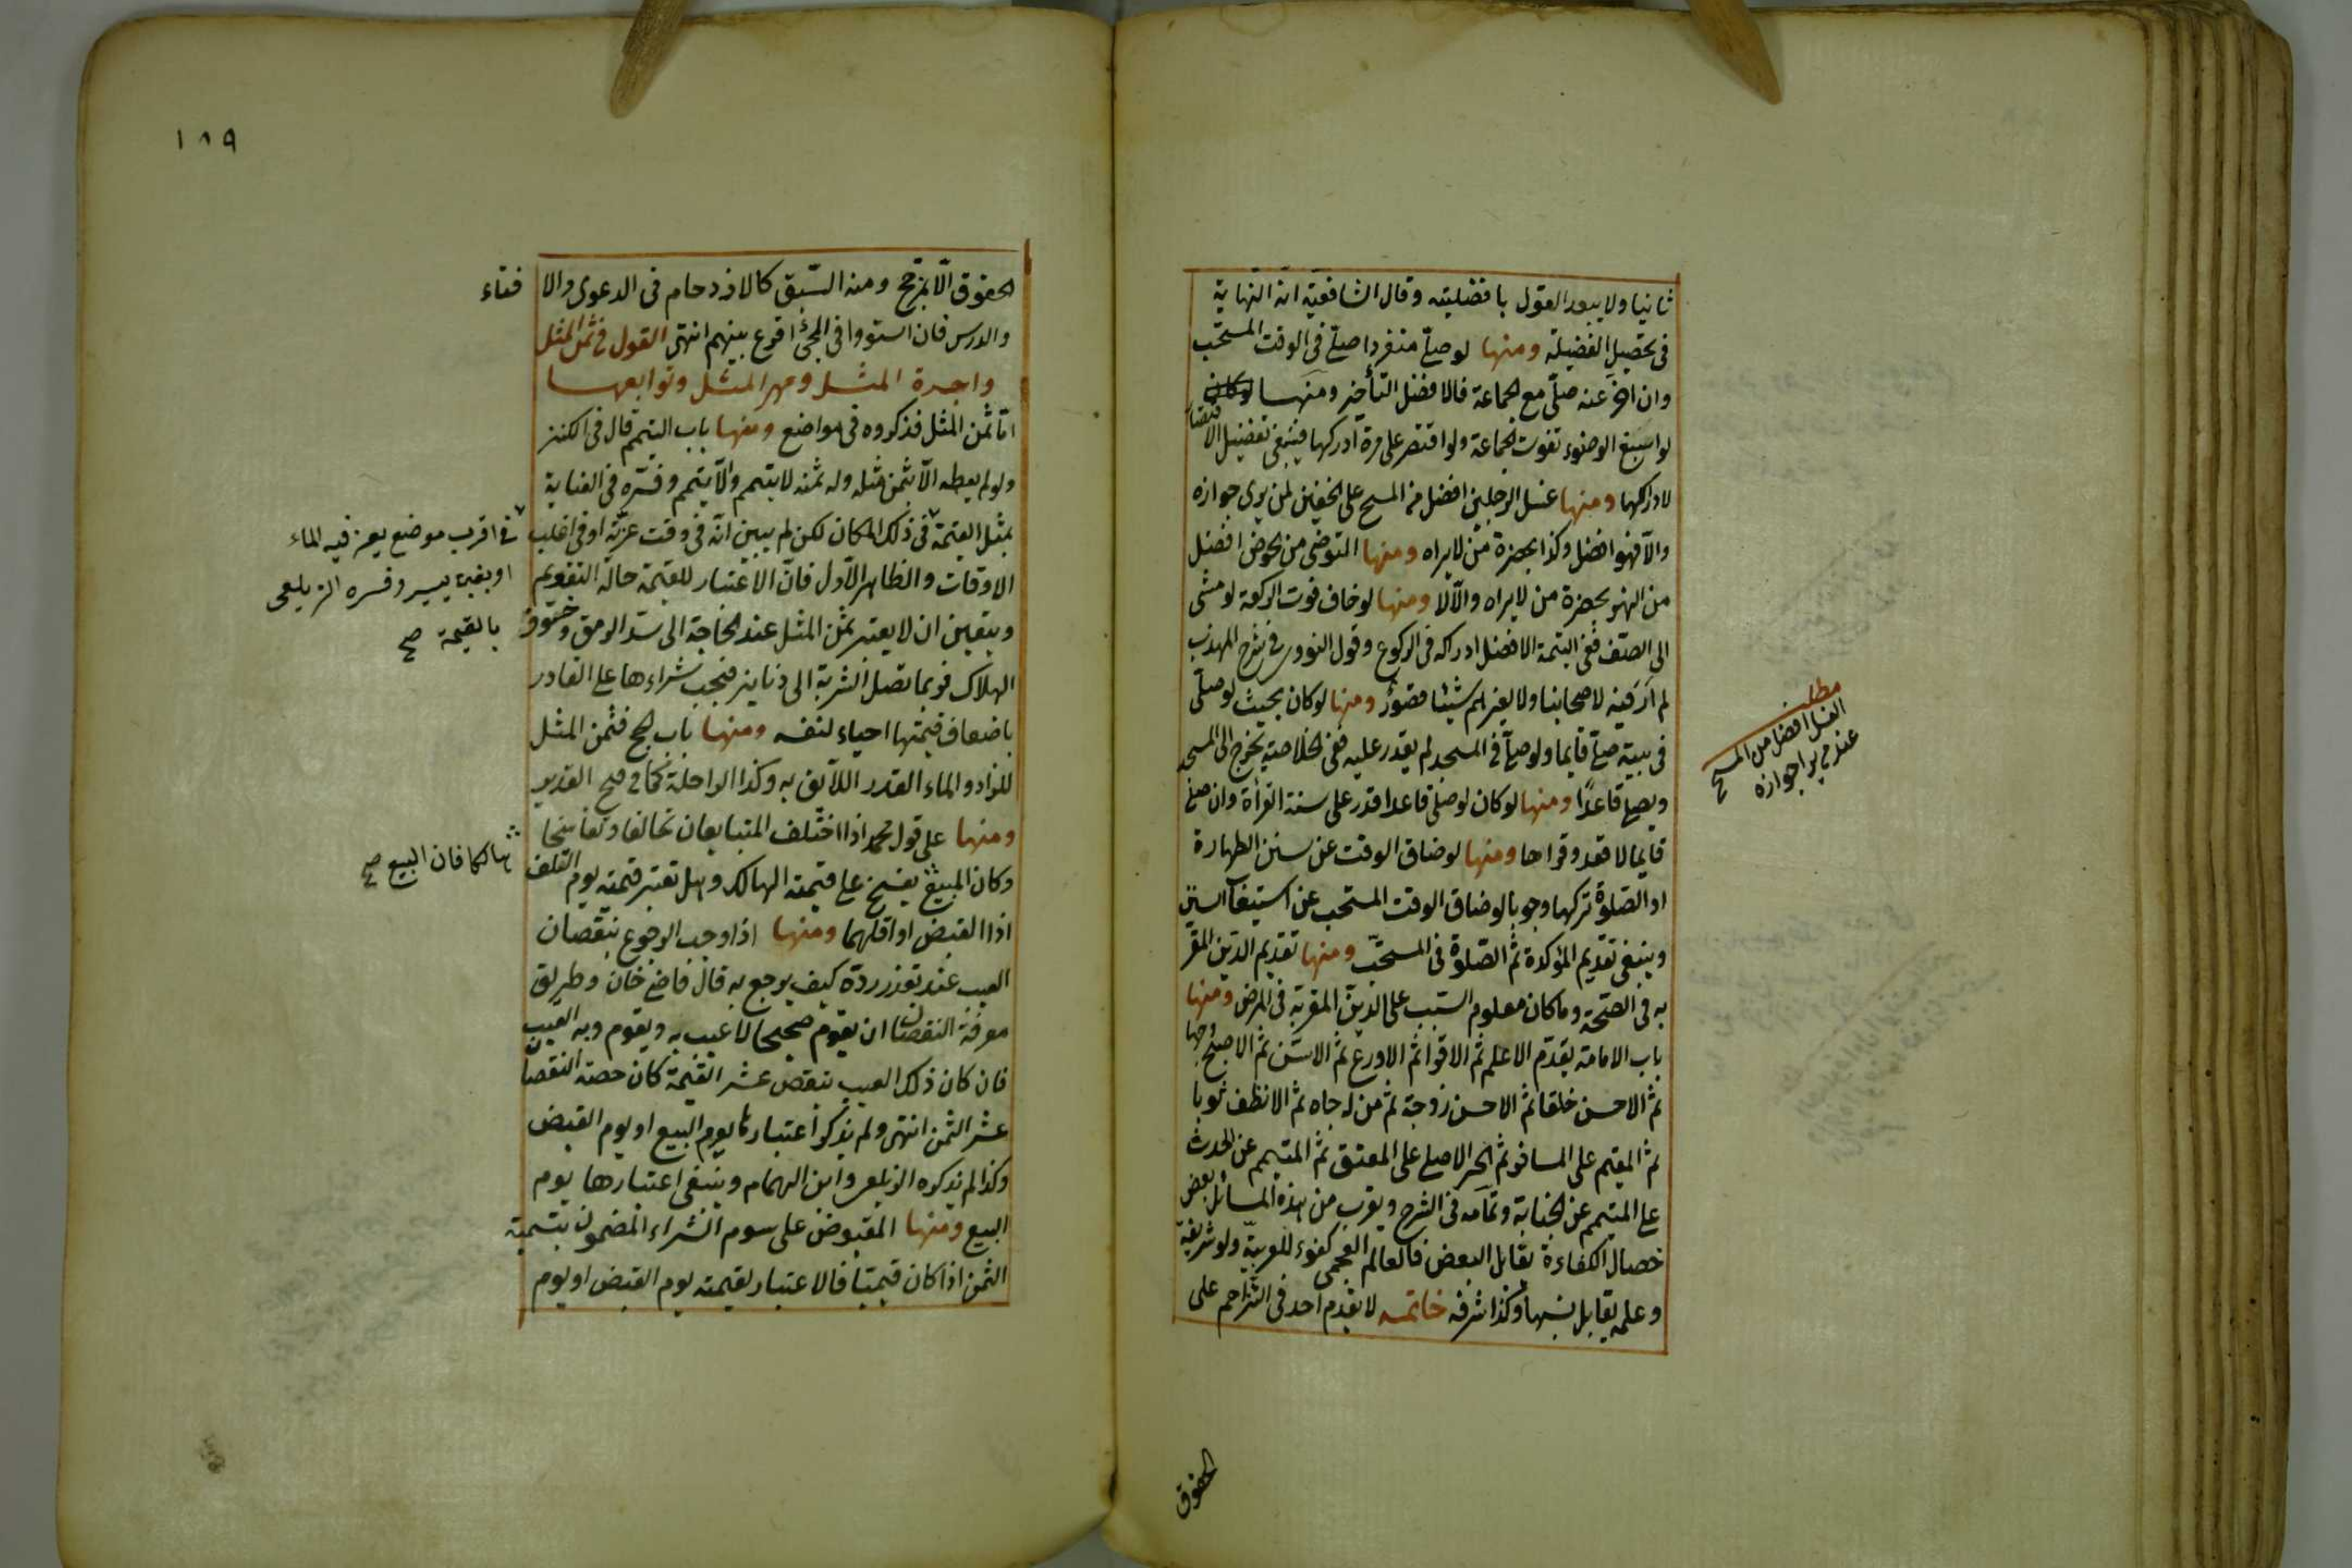 ثانيا ولا يبعد القول بافضليته وقال الشافعية انه النهاية
فى تحصيل الفضيلة ومنها لو صلى منفردا صلى فى الوقت المستحب
وان اخر عنه صلى مع الجماعة فالافضل التأخير ومنها
لو اسبغ الوضوء تفوت الجماعة ولو اقتصر على مرة ادركها فينبغى تفضيل الاقتصار
لادراكها ومنها غسل الرجلين افضل من المسح على الخفين لمن يرى جوازه
والا فهو افضل وكذا بحضرة من لا يراه ومنها التوضى من الحوض افضل
من النهر بحضرة من لا يراه والا لا ومنها لو خاف فوت الركعة لو مشى
الى الصف ففى اليتيمة الافضل ادراكه فى الركوع وقول النووى فى شرح المهذب
لم ار فيه لاصحابنا ولا لغيرهم شيئا قصور ومنها لو كان بحيث لو صلى
فى بيته صلى قايما ولو صلى فى المسجد لم يقدر عليه ففى الخلاصة يخرج الى المسجد
ويصلى قاعدا ومنها لو كان لو صلى قاعدا قدر على سنة القرأة وان صلى
قايما لا قعد وقراها ومنها لو ضاق الوقت عن سنن الطهارة
او الصلوة تركها وجوبا لو ضاق الوقت المستحب عن استيعاب السنن
وينبغى تقديم المؤكدة ثم الصلوة فى المستحب ومنها تقديم الدين المقر
به فى الصحة وما كان معلوم السبب على الدين المقر به فى المرض ومنها
باب الامامة يقدم الاعلم ثم الاقرا ثم الاورع ثم الاسن ثم الاصبح وجها
ثم الاحسن خلقا ثم الاحسن زوجة ثم من له جاه ثم الانظف ثوبا
ثم المقيم على المسافر ثم الحر الاصلى على المعتق ثم المتيمم عن الحدث
على المتيمم عن الجنابة وتمامه فى الشرح ويقرب من هذه المسائل بعض
خصال الكفاءة يقابل البعض فالعالم العجمى كفوء للعربية ولو شريفة
وعلمه يقابل نسبها وكذا شرفه خاتمه لا يقدم احد فى التزاحم على
مطلب
الغسل افضل من المسح
عند من يرا جوازه
الحقوق
١٨٩
الحقوق الا بمرجح ومنه السبق كالازدحام فى الدعوى والافتاء
والدرس فان استووا فى المجئ اقرع بينهم انتهى القول فى ثمن المثل
واجرة المثل ومهر المثل وتوابعها
اما ثمن المثل فذكروه فى مواضع ومنها باب التيمم قال فى الكنز
ولو لم يعطه الا بثمن مثله وله ثمنه لا يتيمم والا يتيمم وفسره فى العناية
بمثل القيمة فى ذلك المكان لكن لم يبين انه فى وقت عزته او فى اغلب
الاوقات والظاهر الاول فان الاعتبار للقيمة حالة التقويم
ويتعين ان لا يعتبر ثمن المثل عند الحاجة الى سد الرمق وخوف
الهلاك فربما تصل الشربة الى دنانير فيجب شراءها على القادر
باضعاف قيمتها احياء لنفسه ومنها باب الحج فثمن المثل
للزاد والماء القدر اللائق به وكذا الراحلة كما فى فتح القدير
ومنها على قول محمد اذا اختلف المتبايعان تحالفا وتفاسخا
وكان المبيع يفسخ على قيمة الهالك وهل تعتبر قيمته يوم التلف
اذا القبض او اقلهما ومنها اذا وجب الرجوع بنقصان
العيب عند تعذر رده كيف يرجع به قال قاضى خان وطريق
معرفة النقصان ان يقوم صحيحا لا عيب به ويقوم وبه العيب
فان كان ذلك العيب ينقص عشر القيمة كان حصة النقصان
عشر الثمن انتهى ولم يذكر اعتبارها يوم البيع او يوم القبض
وكذا لم يذكره الزيلعى وابن الهمام وينبغى اعتبارها يوم
البيع ومنها المقبوض على سوم الشراء المضمون بتسمية
الثمن اذا كان قيميا فالاعتبار لقيمته يوم القبض او يوم
فى اقرب موضع يعز فيه الماء
او بغبن يسير وفسره الزيلعى
بالقيمة صح
هالكا فان البيع صح